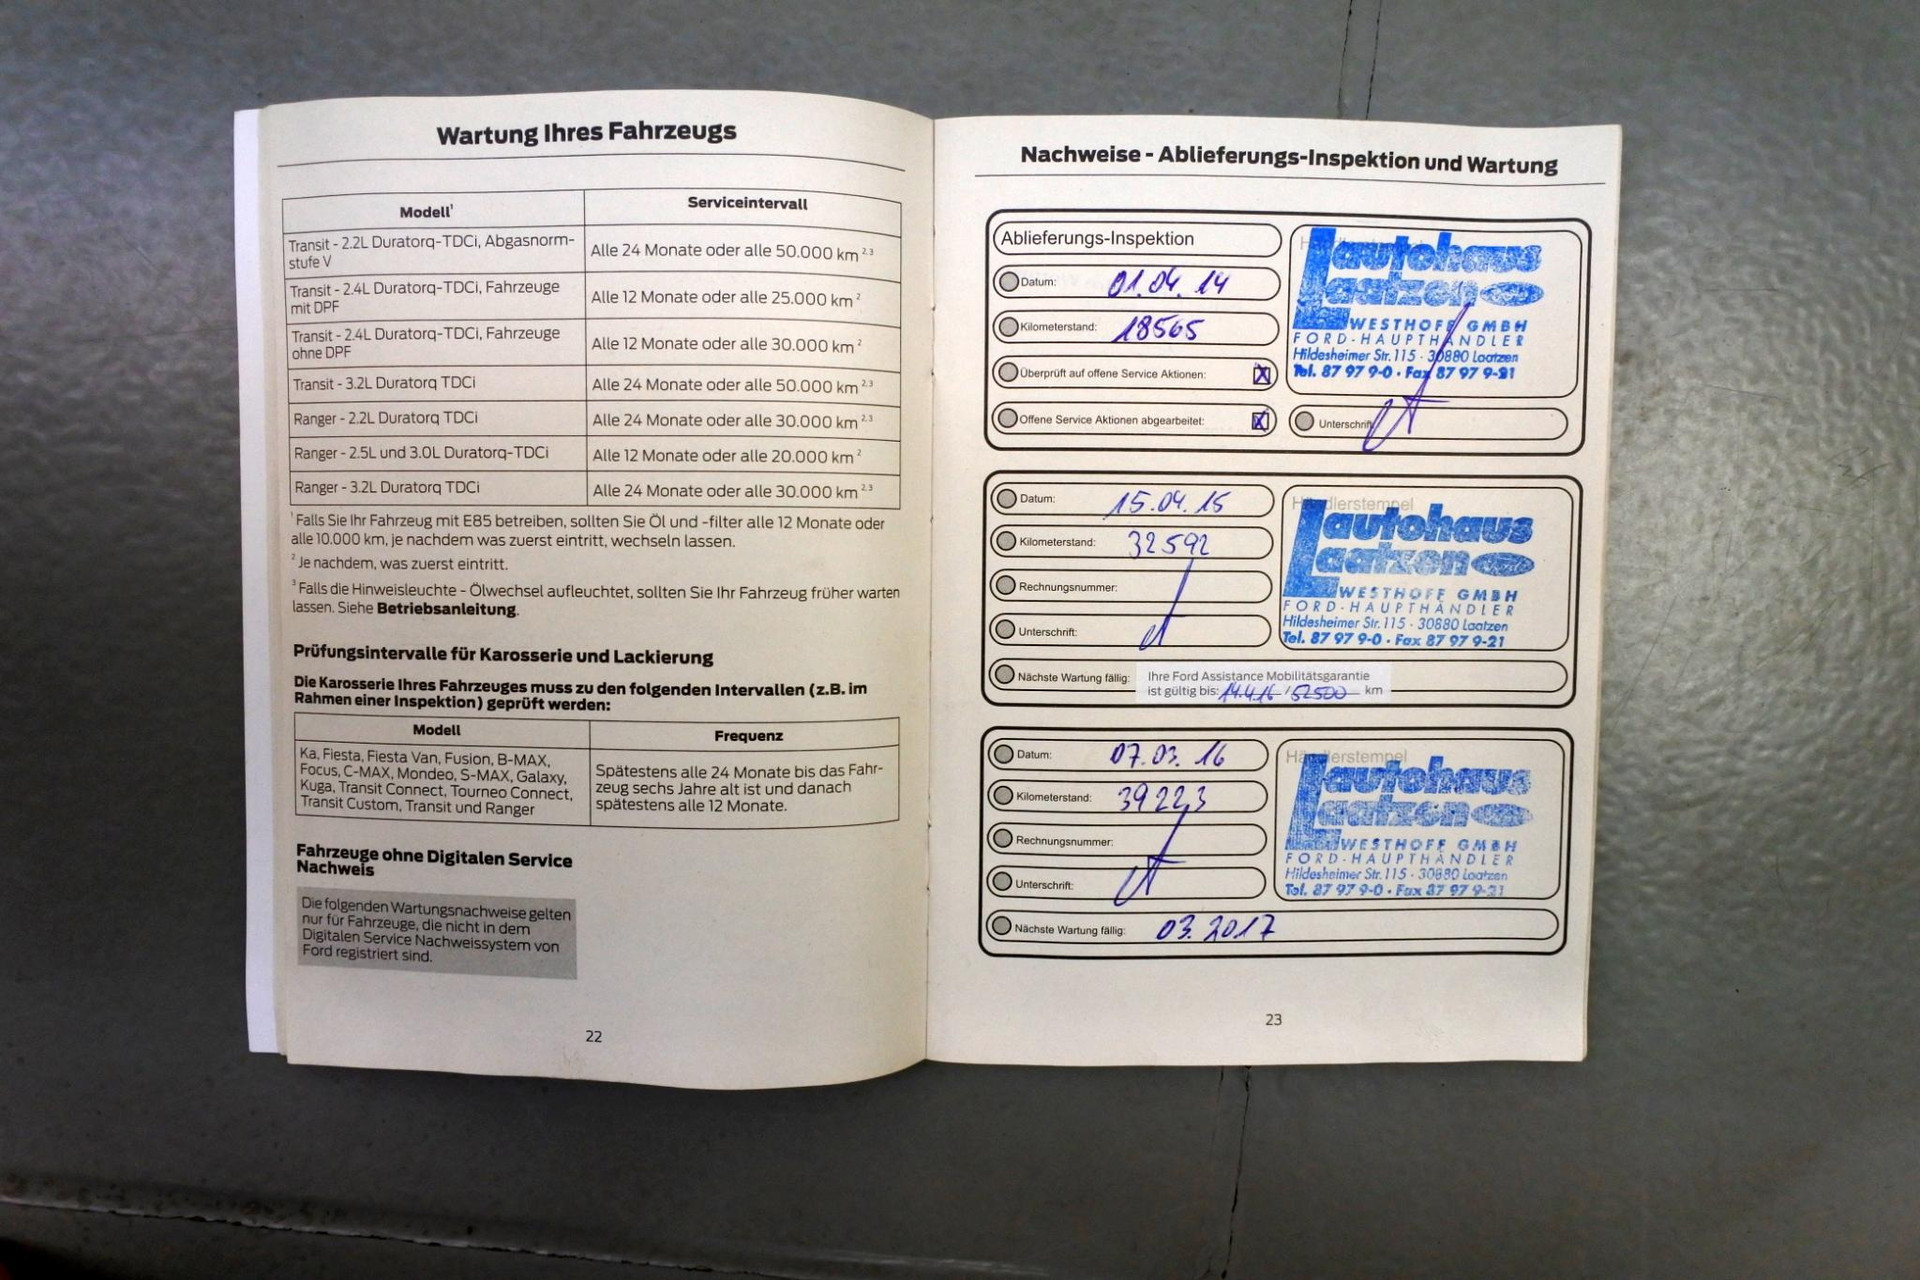 Wartung Ihres Fahrzeugs
Modell¹ Serviceintervall
Transit - 2.2L Duratorq-TDCi, Abgasnorm-
stufe V
Alle 24 Monate oder alle 50.000 km ²·³
Transit - 2.4L Duratorq-TDCi, Fahrzeuge
mit DPF
Alle 12 Monate oder alle 25.000 km ²
Transit - 2.4L Duratorq-TDCi, Fahrzeuge
ohne DPF
Alle 12 Monate oder alle 30.000 km ²
Transit - 3.2L Duratorq TDCi Alle 24 Monate oder alle 50.000 km ²·³
Ranger - 2.2L Duratorq TDCi Alle 24 Monate oder alle 30.000 km ²·³
Ranger - 2.5L und 3.0L Duratorq-TDCi Alle 12 Monate oder alle 20.000 km ²
Ranger - 3.2L Duratorq TDCi Alle 24 Monate oder alle 30.000 km ²·³
¹ Falls Sie Ihr Fahrzeug mit E85 betreiben, sollten Sie Öl und -filter alle 12 Monate oder
alle 10.000 km, je nachdem was zuerst eintritt, wechseln lassen.
² Je nachdem, was zuerst eintritt.
³ Falls die Hinweisleuchte - Ölwechsel aufleuchtet, sollten Sie Ihr Fahrzeug früher warten
lassen. Siehe Betriebsanleitung.
Prüfungsintervalle für Karosserie und Lackierung
Die Karosserie Ihres Fahrzeuges muss zu den folgenden Intervallen (z.B. im
Rahmen einer Inspektion) geprüft werden:
Modell Frequenz
Ka, Fiesta, Fiesta Van, Fusion, B-MAX,
Focus, C-MAX, Mondeo, S-MAX, Galaxy,
Kuga, Transit Connect, Tourneo Connect,
Transit Custom, Transit und Ranger
Spätestens alle 24 Monate bis das Fahr-
zeug sechs Jahre alt ist und danach
spätestens alle 12 Monate.
Fahrzeuge ohne Digitalen Service
Nachweis
Die folgenden Wartungsnachweise gelten
nur für Fahrzeuge, die nicht in dem
Digitalen Service Nachweissystem von
Ford registriert sind.
22
Nachweise - Ablieferungs-Inspektion und Wartung
Ablieferungs-Inspektion
Datum: 01.04.14
Kilometerstand: 18565
Überprüft auf offene Service Aktionen: X
Offene Service Aktionen abgearbeitet: X
autohaus
Laatzen
WESTHOFF GMBH
FORD-HAUPTHÄNDLER
Hildesheimer Str. 115 · 30880 Laatzen
Tel. 87 97 9-0 · Fax 87 97 9-21
Unterschrift
Datum: 15.04.15
Kilometerstand: 32592
Rechnungsnummer:
Unterschrift:
Nächste Wartung fällig: Ihre Ford Assistance Mobilitätsgarantie
ist gültig bis: 14.4.16 / 52500 km
Händlerstempel
autohaus
Laatzen
WESTHOFF GMBH
FORD-HAUPTHÄNDLER
Hildesheimer Str. 115 · 30880 Laatzen
Tel. 87 97 9-0 · Fax 87 97 9-21
Datum: 07.03.16
Kilometerstand: 39223
Rechnungsnummer:
Unterschrift:
Nächste Wartung fällig: 03.2017
Händlerstempel
autohaus
Laatzen
WESTHOFF GMBH
FORD-HAUPTHÄNDLER
Hildesheimer Str. 115 · 30880 Laatzen
Tel. 87 97 9-0 · Fax 87 97 9-21
23